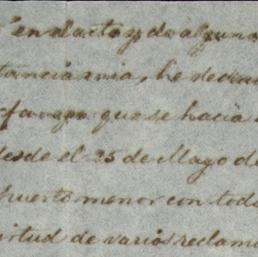 en el acto y de alguna
tancia mia, he de
que se hacia
desde el 25 de Mayo de
puerto menor con tod
irtud de varios reclam